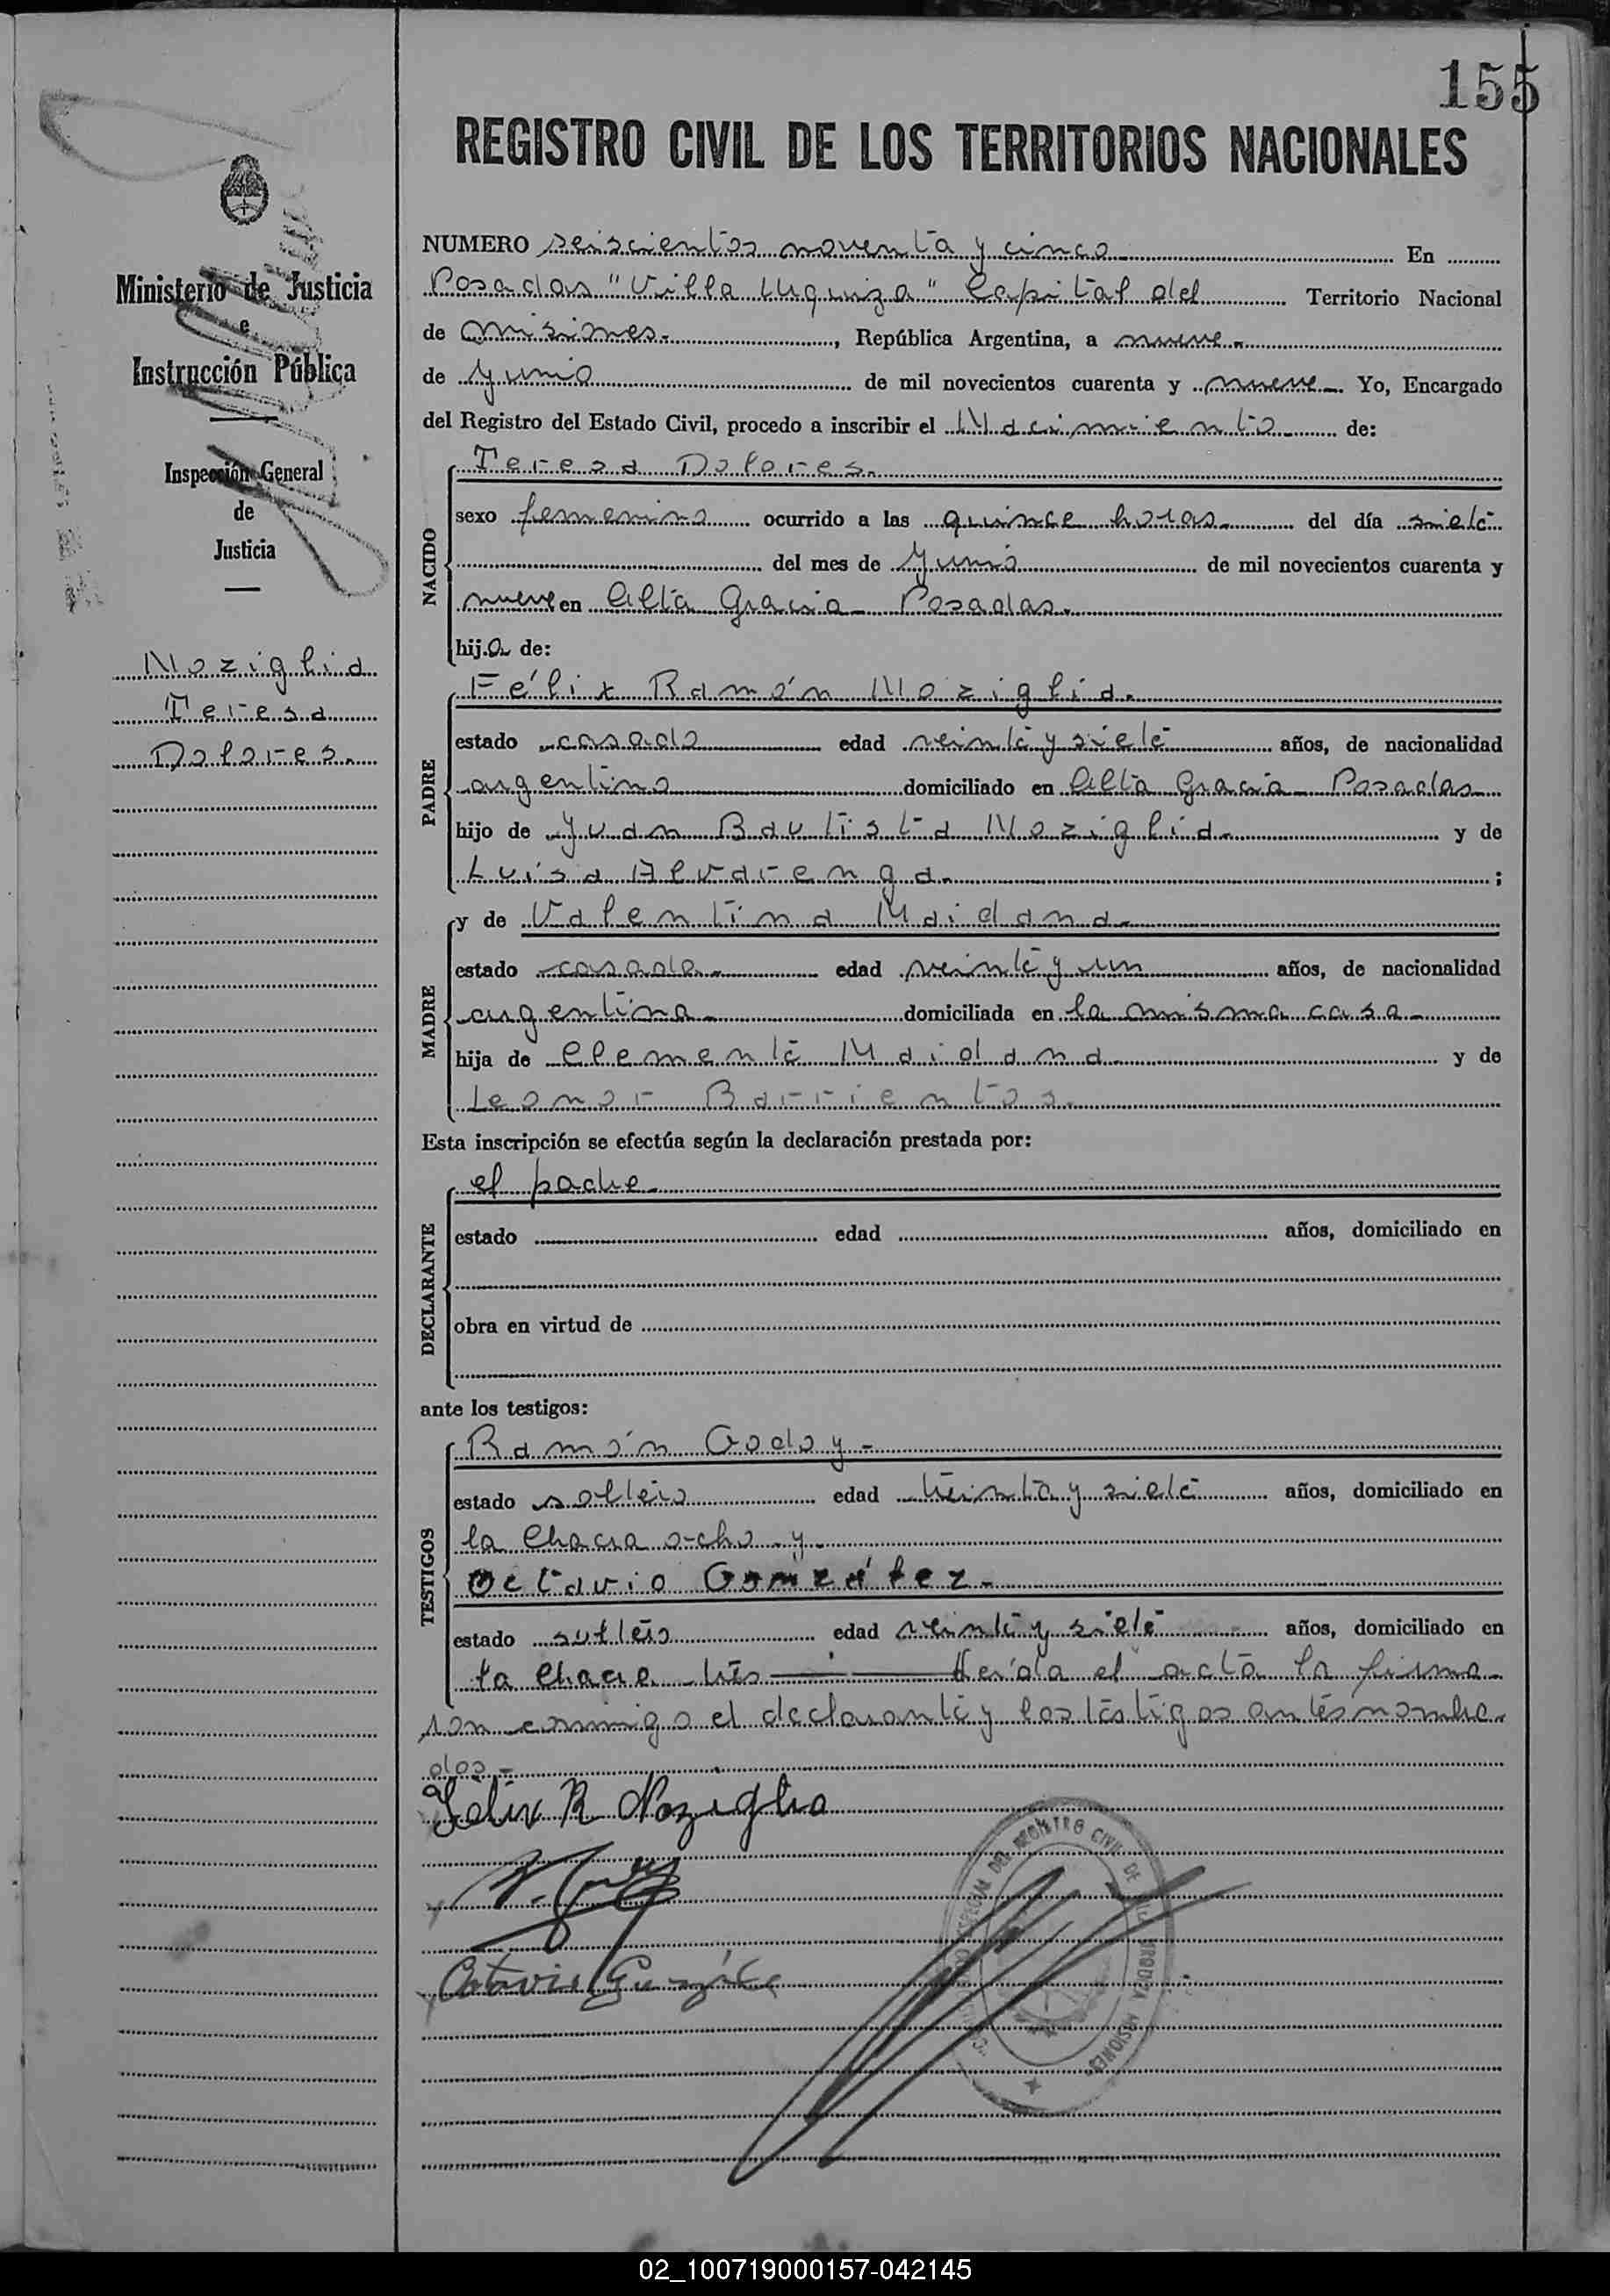 155
REGISTRO CIVIL DE LOS TERRITORIOS NACIONALES
Ministerio de Justicia
e
Instrucción Pública
Inspección General
de
Justicia
Noziglia
Teresa
Dolores.
NUMERO seiscientos noventa y cinco En
Posadas "Villa Urquiza" Capital del Territorio Nacional
de Misiones. , República Argentina, a nueve.
de Junio de mil novecientos cuarenta y nueve Yo, Encargado
del Registro del Estado Civil, procedo a inscribir el Nacimiento de:
NACIDO
Teresa Dolores.
sexo femenino ocurrido a las quince horas. del día siete
del mes de Junio de mil novecientos cuarenta y
nueve en Alta Gracia - Posadas.
hija de:
PADRE
Félix Ramón Noziglia.
estado casado edad veinte y siete años, de nacionalidad
argentino domiciliado en Alta Gracia - Posadas
hijo de Juan Bautista Noziglia. y de
Luisa Alvarenga. ;
MADRE
y de Valentina Maidana.
estado casada. edad veinte y un años, de nacionalidad
argentina. domiciliada en la misma casa
hija de Clemente Maidana y de
Leonor Barrientos.
Esta inscripción se efectúa según la declaración prestada por:
DECLARANTE
el padre.
estado edad años, domiciliado en
obra en virtud de
ante los testigos:
TESTIGOS
Ramón Godoy -
estado soltero edad treinta y siete años, domiciliado en
la Chacra ocho y
Octavio González.
estado soltero edad veinte y siete años, domiciliado en
la Chacra tres Leída el acta la firma
ron conmigo el declarante y los testigos antes nombra
dos -
Félix R Noziglia
Octavio González
DEL REGISTRO CIVIL DE VILLA URQUIZA MISIONES
02_100719000157-042145